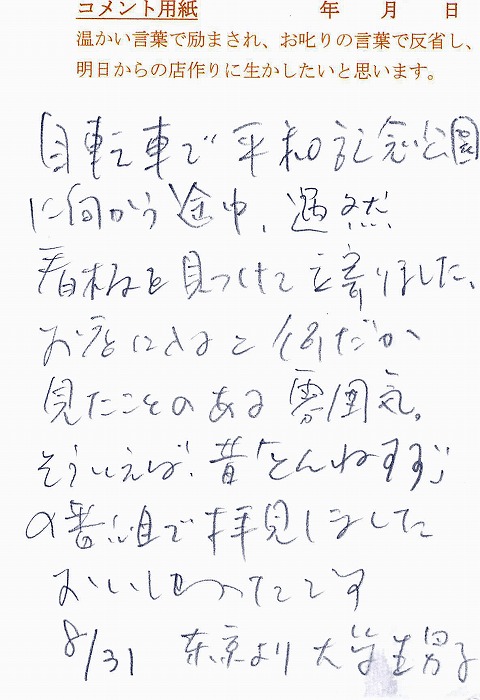 コメント用紙 年 月 日
温かい言葉で励まされ、お叱りの言葉で反省し、
明日からの店作りに生かしたいと思います。
自転車で平和記念公園
に向かう途中、偶然
看板を見つけて立寄りました、
お店に入ると何だか
見たことのある雰囲気。
そういえば、昔「とんねるず」
の番組で拝見しました
おいしかったです
8/31 東京より 大学生男子